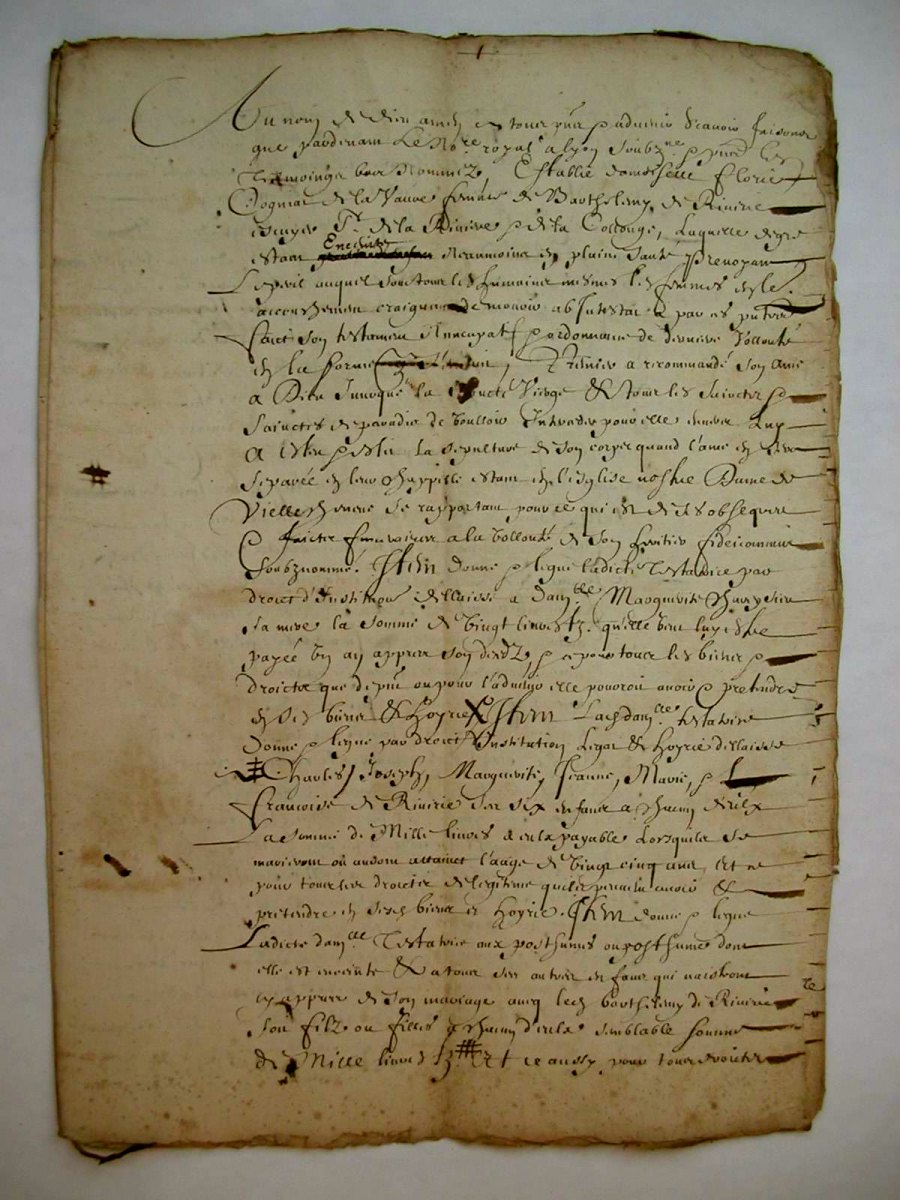 Au nom de dieu amen a tous pñs et advenir scavoir faisons
que pardevant Le No.re royal a lyon soubz.ne et présentz les
tesmoings bas nommez, Establie damoiselle Florie
Cognac de la Vaure femme de Barthelemy de Riverie
escuyer Sr. de la Riviere et de la Collonge, Laquelle de gre
estant Enceinte neanmoins en pleine santé prevoyant
Le peril auquel sont tous les humains mesmes les femmes
accouchement craignant de mourir ab Intestat a par ces pñtes
faict son testament Nuncupatif et ordonnance de derniere vollonté
en la forme, Premier a recommandé son ame
a Dieu Invoqué la saincte Vierge & tous les saincts et
sainctes de paradis de voulloir Interceder pour elle
A esleu et eslit la sepulture de son corps quand l'ame en sera
separée en leur chappelle estant en l'Eglise nostre Dame de
Villechenene se rapportant pour ce qui est de ses obseques
et fraictz funeraires a la vollonté de son heritier fideicommis
soubznommé. Item donne et legue ladicte testatrice par
droict d'Institution & dellaisse a dam.lle Marguerite
sa mere la somme de vingt livres tz. qu'elle veut luy estre
payée un an appres son decedz, et ce pour tous les biens et
droictz que de pñt ou pour l'advenir elle pouroit avoir et pretendre
en ses biens & hoyrie Item Lad. dam.lle testatrice
Donne et legue par droict d'Institution Legat & hoyrie dellaisse
a Charles, Joseph, Marguerite, Jeanne, Marie, et
Francoise de Riverie ses six enfans a chacun d'eulx
La somme de Mille livres a eulx payable Lorsqu'ilz se
marieront ou auront attainct l'aage de vingt cinq ans, Et ce
pour tous les droictz de legitime qu'ilz peuvent avoir &
pretendre en sesd. biens et hoyrie. Item donne et legue
Ladicte dam.lle Testatrice aux posthumes ou posthume dont
elle est enceinte & a tous ses autres enfans qui naistront
cy appres de son mariage avec led. Barthelemy de Riverie
soit filz ou filles a chacun d'eulx semblable somme
de Mille livres tz. Et ce aussy pour tous droictz